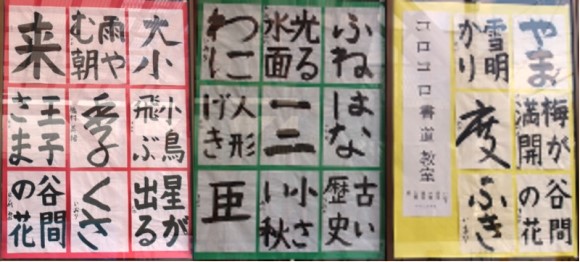 やま
梅が
満開
谷間
の花
雪明
かり
度
ふき
コロコロ書道教室
ふね
はな
古い
歴史
光る
水面
一二
小さ
い秋
わに
人形
げき
亜
大小
小鳥
飛ぶ
星が
出る
雨や
む朝
季
くさ
来
王子
さま
谷間
の花